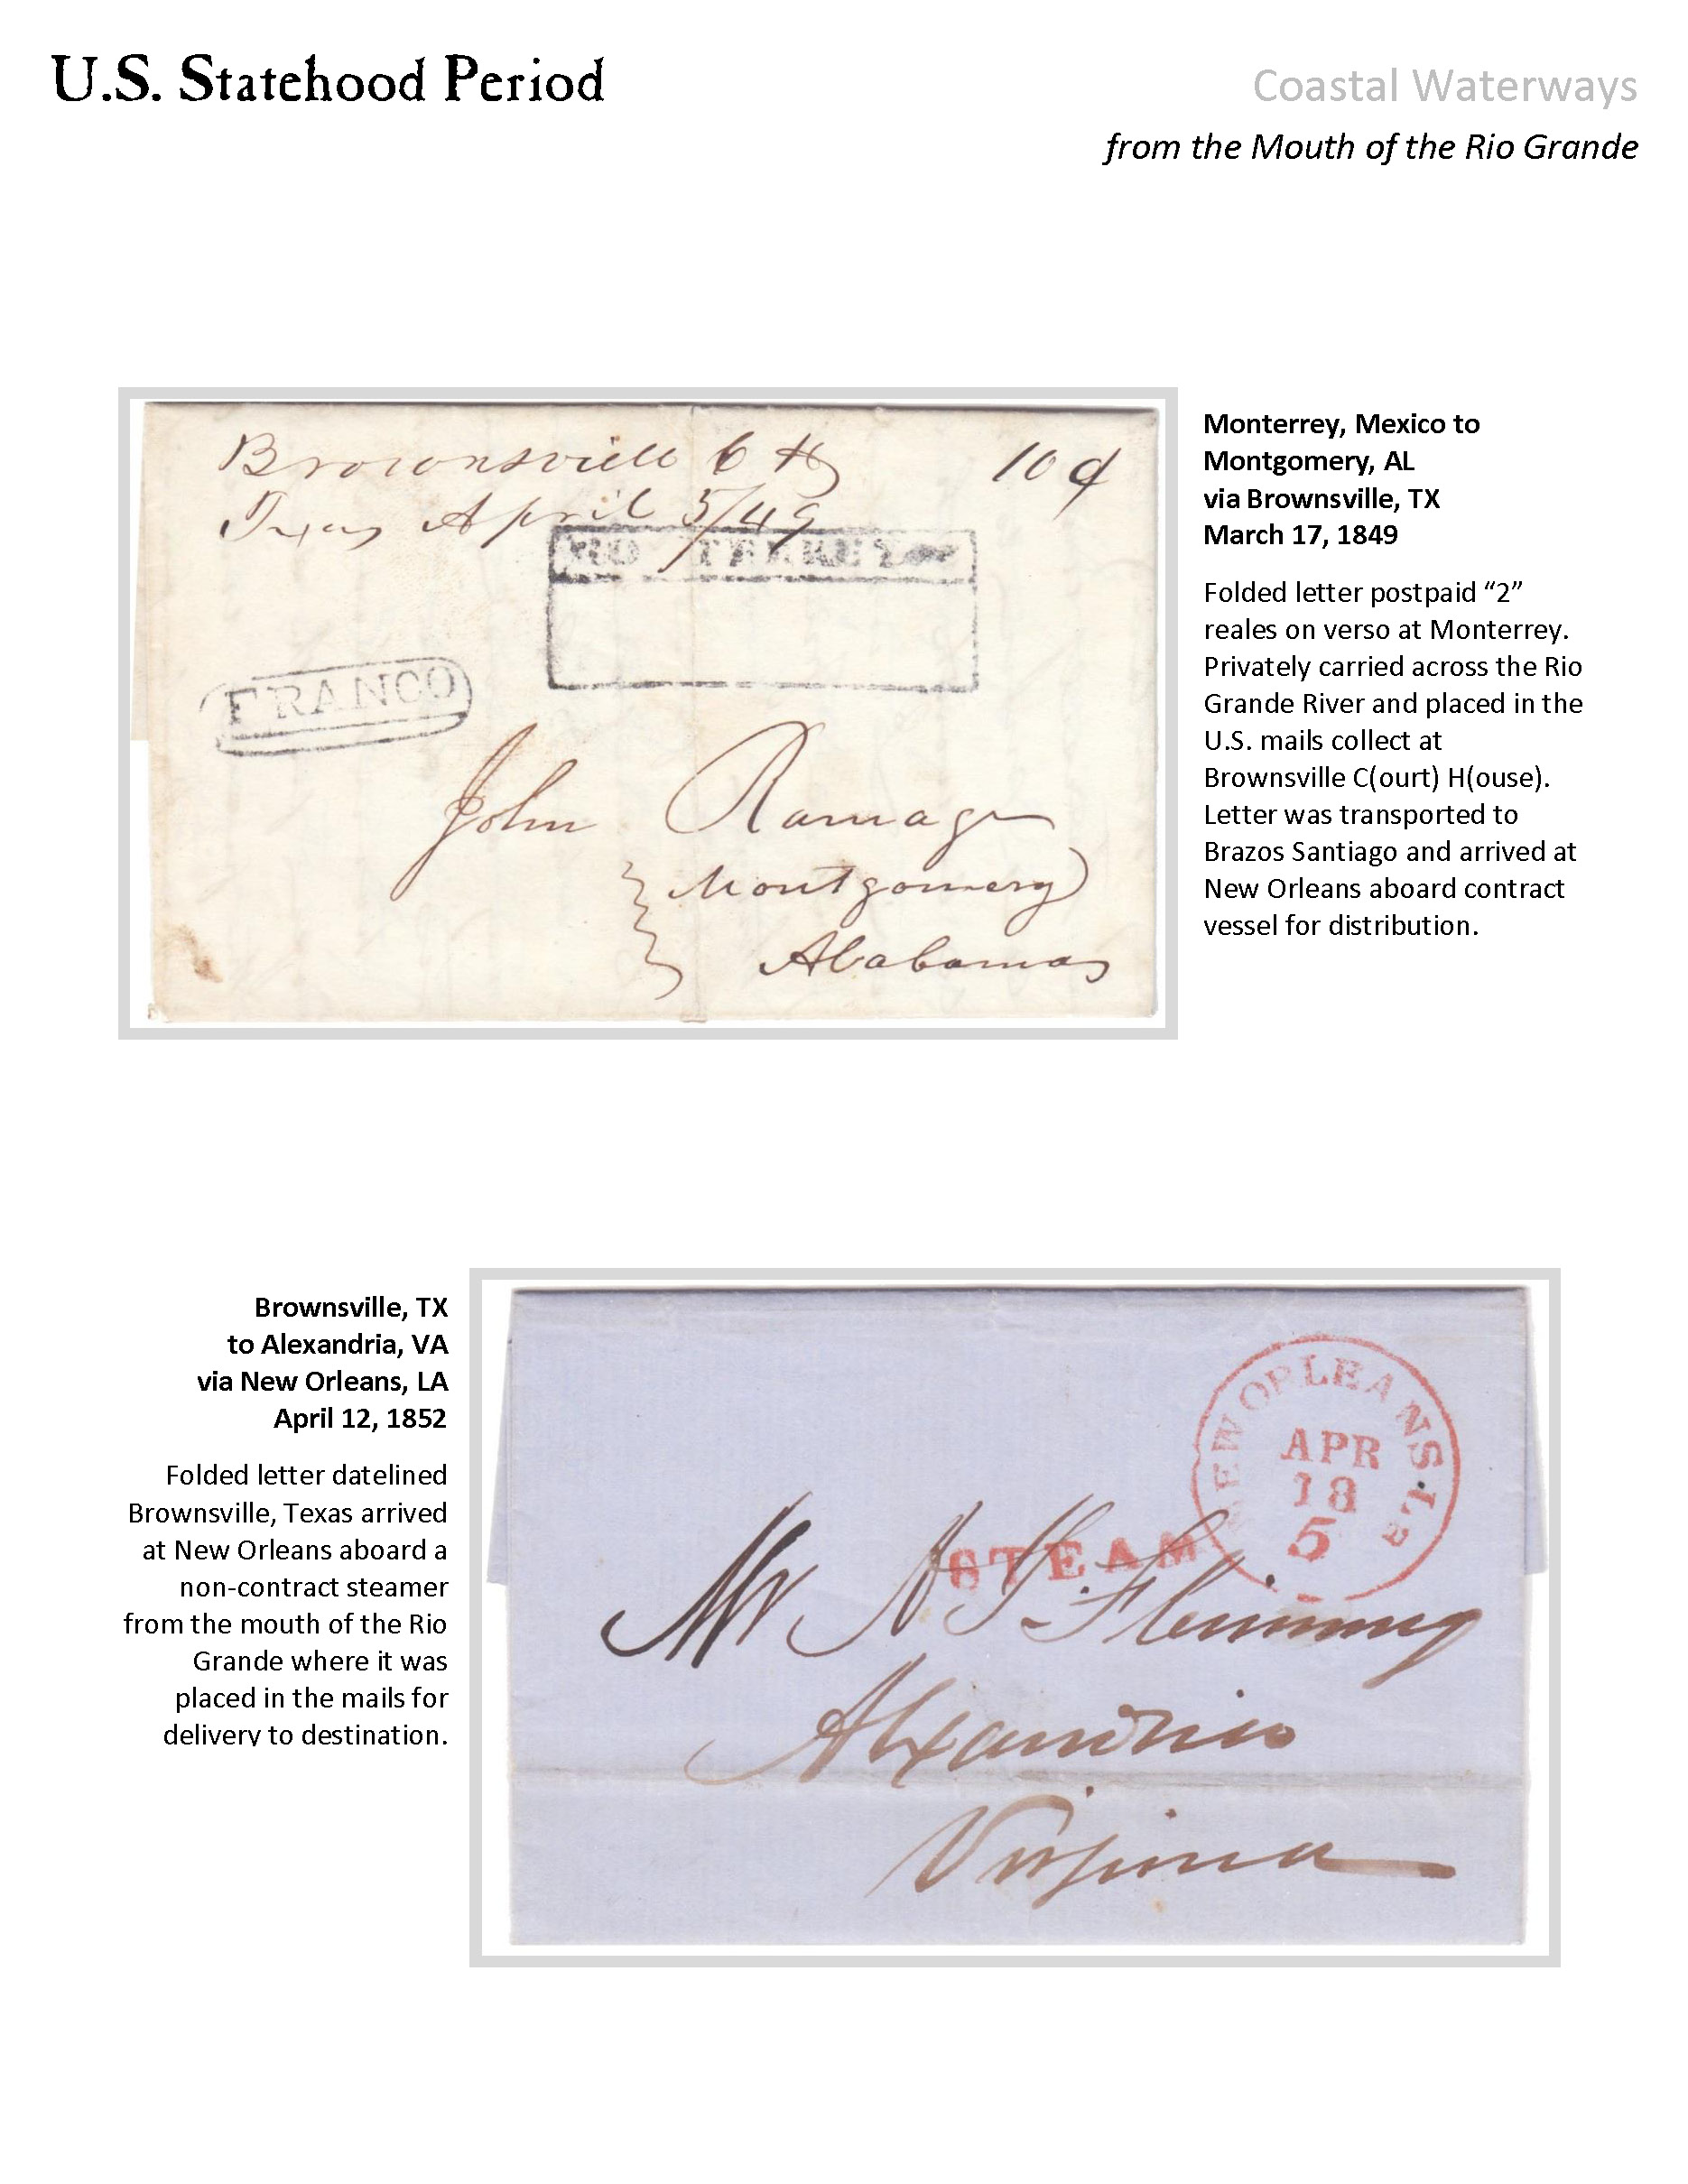 U.S. Statehood Period
Coastal Waterways
from the Mouth of the Rio Grande
Brownsville C H
10 ¢
Texas April 5/49
FRANCO
John Ramage
Montgomery
Alabama
Monterrey, Mexico to
Montgomery, AL
via Brownsville, TX
March 17, 1849
Folded letter postpaid “2”
reales on verso at Monterrey.
Privately carried across the Rio
Grande River and placed in the
U.S. mails collect at
Brownsville C(ourt) H(ouse).
Letter was transported to
Brazos Santiago and arrived at
New Orleans aboard contract
vessel for distribution.
Brownsville, TX
to Alexandria, VA
via New Orleans, LA
April 12, 1852
Folded letter datelined
Brownsville, Texas arrived
at New Orleans aboard a
non-contract steamer
from the mouth of the Rio
Grande where it was
placed in the mails for
delivery to destination.
NEW ORLEANS La
APR
18
5
STEAM
Mr A J Fleming
Alexandria
Virginia